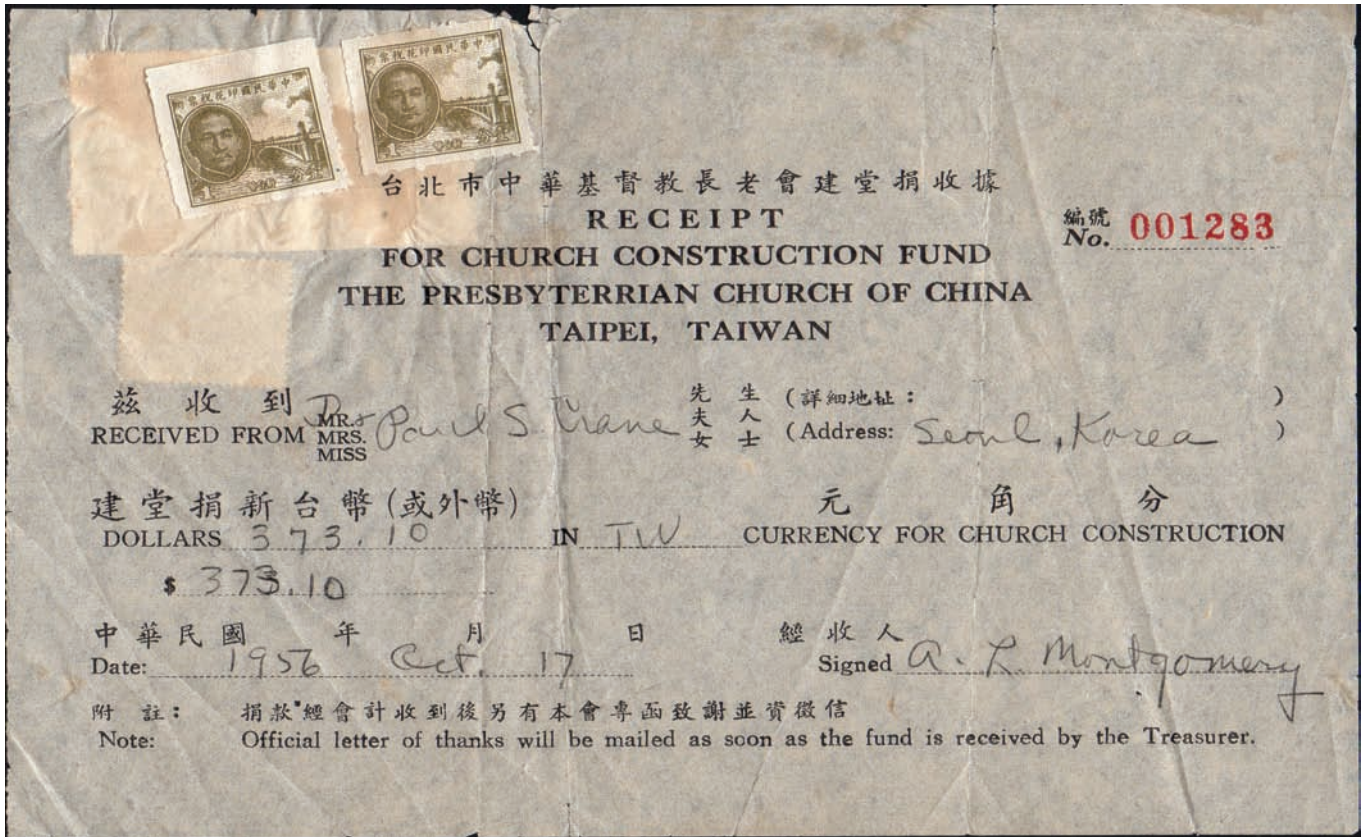 中華民國印花稅票
1
中華民國印花稅票
1
台北市中華基督教長老會建堂捐收據
RECEIPT
FOR CHURCH CONSTRUCTION FUND
THE PRESBYTERRIAN CHURCH OF CHINA
TAIPEI, TAIWAN
編號
No. 001283
茲收到 先生 (詳細地址: )
夫人
女士
RECEIVED FROM MR. MRS. MISS Paul S. Crane (Address: Seoul, Korea )
建堂捐新台幣(或外幣) 元 角 分
DOLLARS 373.10 IN TW CURRENCY FOR CHURCH CONSTRUCTION
$ 373.10
中華民國 年 月 日 經收人
Date: 1956 Oct. 17 Signed A. L. Montgomery
附註: 捐款經會計收到後另有本會專函致謝並資徵信
Note: Official letter of thanks will be mailed as soon as the fund is received by the Treasurer.